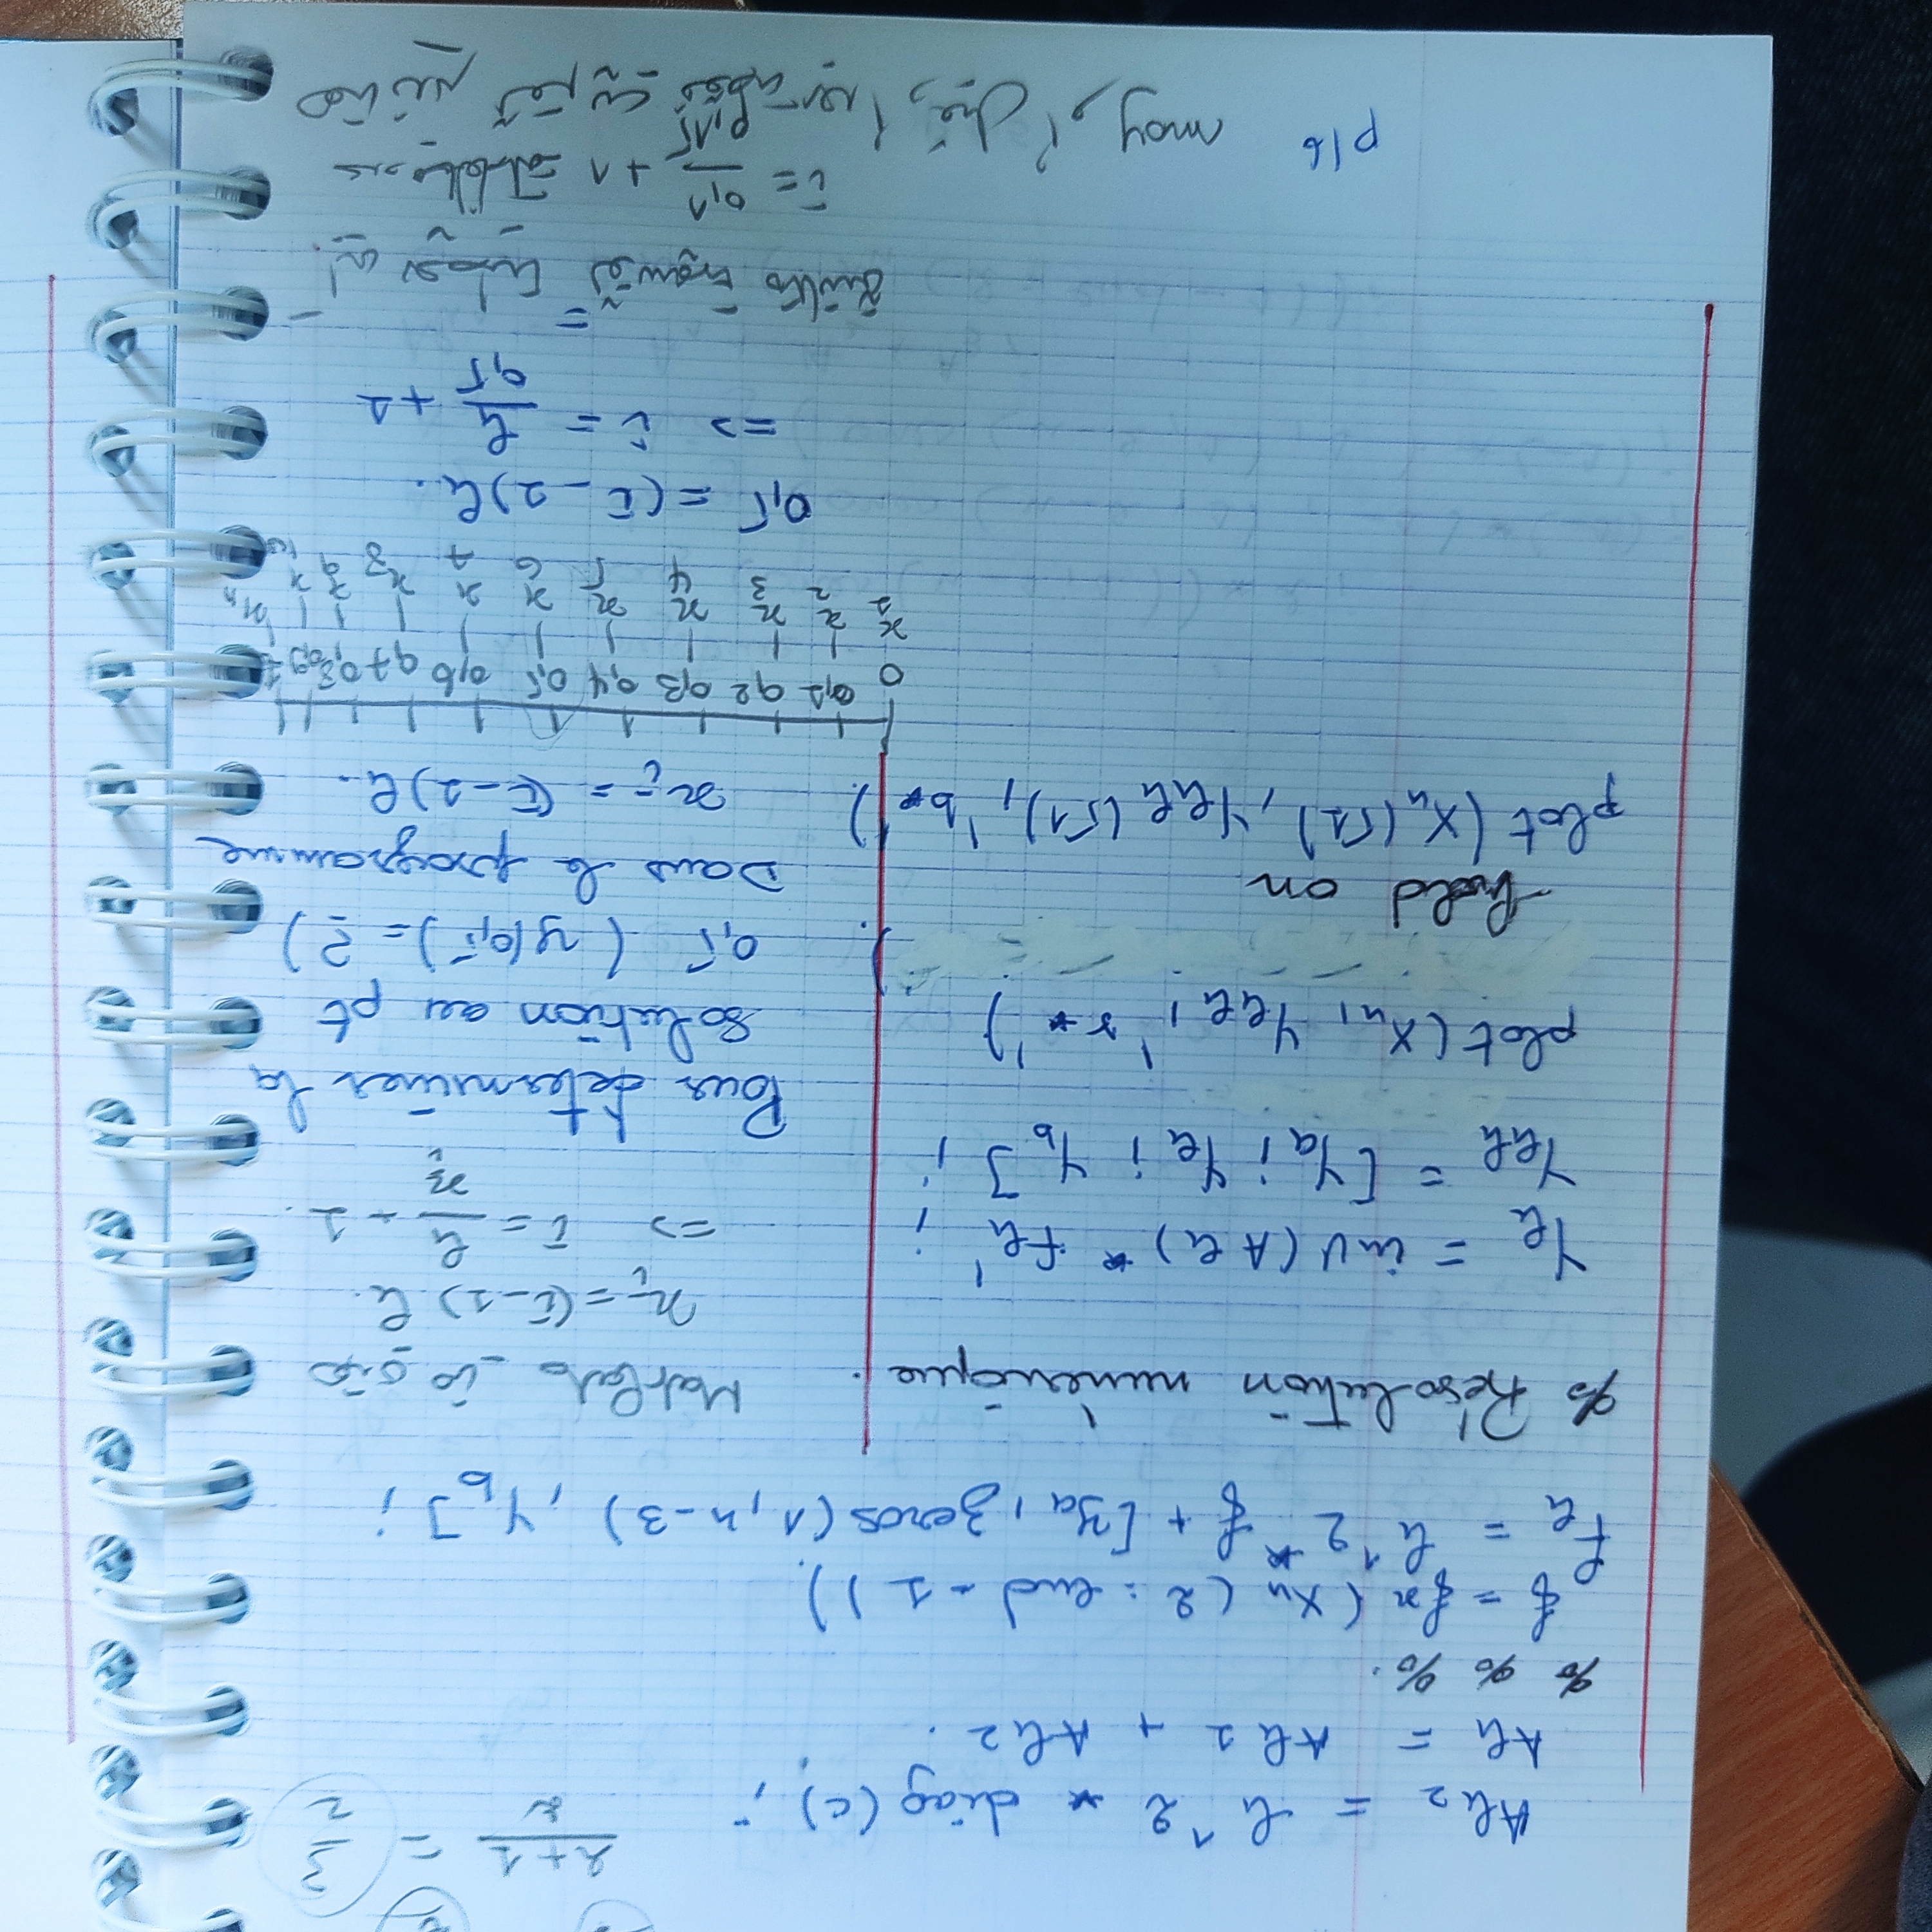 2+1 / 2 = 3 / 2
Ah2 = h^2 * diag(c);
Ah = Ah1 + Ah2.
% % %.
f = fx(Xn(2:end-1)).
Fh = h^2 * f + [ya, zeros(1,n-3), yb];
% Résolution numérique.
Yh = inv(Ah) * fh';
Yhh = [ya; Yh; yb];
plot(Xn, Yhh, 'r*')
hold on
plot(Xn(51), Yhh(51), 'b*').
Matlab
xi = (i-1)h.
=> i = h / xi - 1.
Pour déterminer la
solution au pt
0,5 (y(0,5) = ?)
Dans le programme
xi = (i-1)h.
0 0,1 0,2 0,3 0,4 0,5 0,6 0,7 0,8 0,9 1
x1 x2 x3 x4 x5 x6 x7 x8 x9 x10 x11
0,5 = (i-1)h.
=> i = h / 0,5 + 1
=
i = 0,1 / 0,15 + 1
تقريب بعد أو قبل أو moy
p16